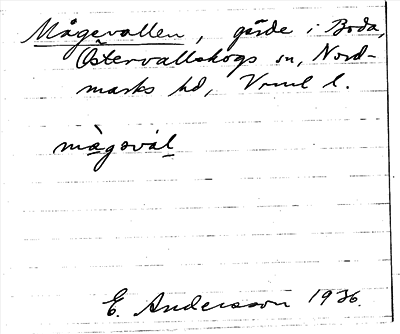 Mågevallen, gärde i Boda,
Östervallskogs sn, Nord-
marks hd, Vrml l.
màgəvál
E. Andersson 1936.